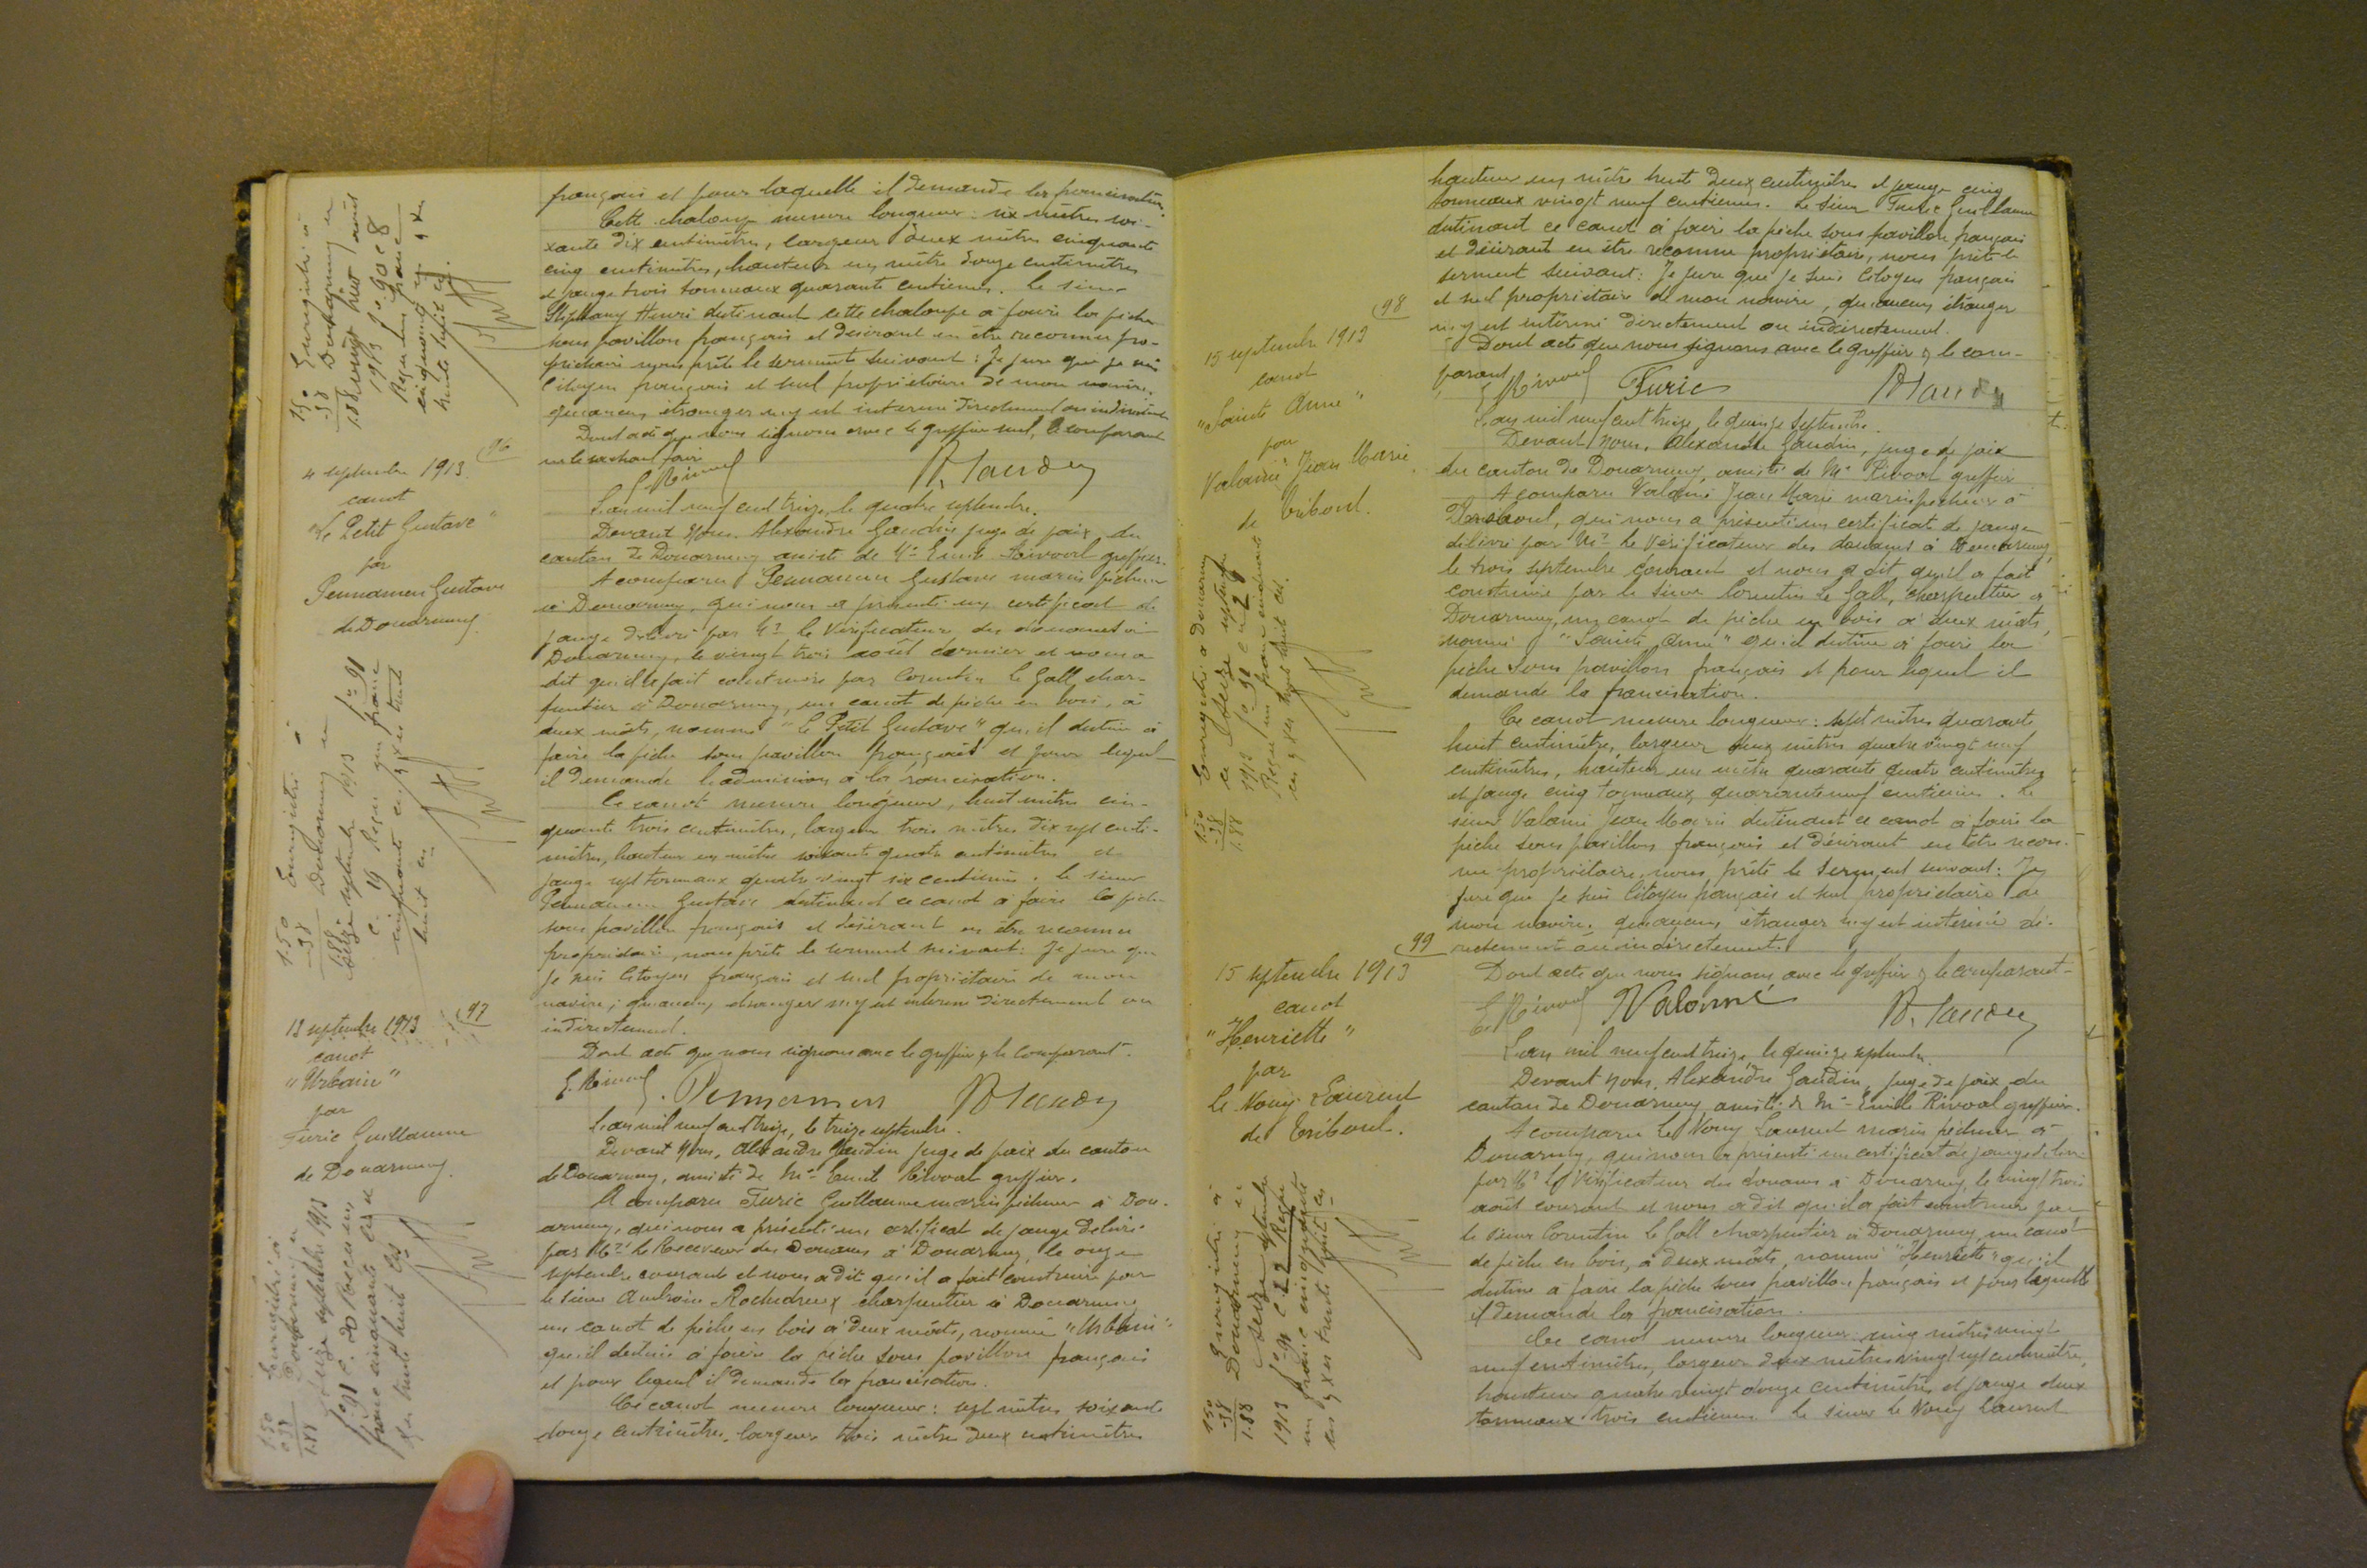 français et pour laquelle il demande la francisation.
Cette chaloupe mesure longueur : six mètres soi-
xante dix centimètres, largeur deux mètres cinquante
cinq centimètres, hauteur un mètre douze centimètres
et jauge trois tonneaux quarante centièmes. Le sieur
Stéphany Henri destinant cette chaloupe à faire la pêche
sous pavillon français et désirant en être reconnu pro-
priétaire nous prête le serment suivant : Je jure que je suis
Citoyen français et seul propriétaire de mon navire,
qu'aucun étranger n'y est intéressé directement ou indirectement
Dont acte que nous signons avec le greffier seul, le comparant
ne le sachant faire
E. Rivoal A. Gaudin
Enregistré à
Douarnenez en
vingt huit août
1913 f° 90 c 8
Reçu un franc
cinquante en p x es
trente huit cs.
150
-38
1.88
96
4 septembre 1913
canot
"Le Petit Gustave"
par
Pennamen Gustave
de Douarnenez
L'an mil neuf cent treize, le quatre septembre.
Devant Nous, Alexandre Gaudin juge de paix du
canton de Douarnenez assisté de Me Emile Rivoal greffier.
A comparu Pennamen Gustave marin pêcheur
à Douarnenez, qui nous a présenté un certificat de
jauge délivré par Mr le Vérificateur des douanes à
Douarnenez, le vingt trois août dernier et nous a
dit qu'il a fait construire par Corentin Le Gall, char-
pentier à Douarnenez, un canot de pêche en bois, à
deux mâts, nommé "Le Petit Gustave" qu'il destine à
faire la pêche sous pavillon français et pour lequel
il demande l'admission à la francisation.
Ce canot mesure longueur, huit mètres cin-
quante trois centimètres, largeur trois mètres dix sept centi-
mètres, hauteur un mètre soixante quatre centimètres et
jauge sept tonneaux quatre vingt six centièmes. Le sieur
Pennamen Gustave destinant ce canot à faire la pêche
sous pavillon français et désirant en être reconnu
propriétaire, nous prête le serment suivant : Je jure que
Je suis Citoyen français et seul propriétaire de mon
navire ; qu'aucun étranger n'y est intéressé directement ou
indirectement.
Dont acte que nous signons avec le greffier & le comparant.
E. Rivoal. Pennamen A. Gaudin
Enregistré à
Douarnenez en
seize septembre 1913 f° 91
c. 19 Reçu un franc
cinquante en p x es trente
huit cs
1.50
-38
1.88
97
13 septembre 1913
canot
"Urbain"
par
Furic Guillaume
de Douarnenez.
L'an mil neuf cent treize, le treize septembre.
Devant Nous, Alexandre Gaudin juge de paix du canton
de Douarnenez, assisté de Me Emile Rivoal greffier.
A comparu Furic Guillaume marin pêcheur à Dou-
arnenez, qui nous a présenté un certificat de jauge délivré
par Mr le Receveur des Douanes à Douarnenez, le onze
septembre courant et nous a dit qu'il a fait construire par
le sieur charpentier à Douarnenez
un canot de pêche en bois à deux mâts, nommé "Urbain"
qu'il destine à faire la pêche sous pavillon français
et pour lequel il demande la francisation.
Ce canot mesure longueur : sept mètres soixante
douze centimètres, largeur trois mètres deux centimètres
Enregistré à
Douarnenez en
seize septembre 1913
f° 91 c. 20 Reçu un
franc cinquante en
p x es trente huit cts
1.50
0.38
1.88
hauteur un mètre trente deux centimètres et jauge cinq
tonneaux vingt neuf centièmes. Le sieur Furic Guillaume
destinant ce canot à faire la pêche sous pavillon français
et désirant en être reconnu propriétaire, nous prête le
serment suivant : Je jure que je suis Citoyen français
et seul propriétaire de mon navire, qu'aucun étranger
n'y est intéressé directement ou indirectement.
Dont acte que nous signons avec le greffier & le com-
parant
E. Rivoal Furic A. Gaudin
98
15 septembre 1913
canot
"Sainte Anne"
par
Valomé Jean Marie
de Tréboul.
L'an mil neuf cent treize, le quinze septembre.
Devant Nous, Alexandre Gaudin, juge de paix
du canton de Douarnenez, assisté de Me Rivoal greffier
A comparu Valomé Jean Marie marin pêcheur à
Tréboul, qui nous a présenté un certificat de jauge
délivré par Mr le Vérificateur des douanes à Douarnenez
le trois septembre courant et nous a dit qu'il a fait
construire par le sieur Corentin Le Gall, charpentier à
Douarnenez, un canot de pêche en bois à deux mâts,
nommé "Sainte Anne" qu'il destine à faire la
pêche sous pavillon français et pour lequel il
demande la francisation.
Ce canot mesure longueur : sept mètres quarante
huit centimètres, largeur deux mètres quatre vingt neuf
centimètres, hauteur un mètre quarante quatre centimètres
et jauge cinq tonneaux quarante neuf centièmes. Le
sieur Valomé Jean Marie destinant ce canot à faire la
pêche sous pavillon français et désirant en être recon-
nu propriétaire, nous prête le serment suivant : Je
jure que je suis Citoyen français et seul propriétaire de
mon navire, qu'aucun étranger n'y est intéressé di-
rectement ou indirectement.
Dont acte que nous signons avec le greffier & le comparant
E. Rivoal Valomé A. Gaudin
Enregistré à Douarnenez
ce seize septembre
1913 f° 92 c 2
Reçu un franc cinquante
en p x es trente huit cts.
1.50
-38
1.88
99
15 septembre 1913
canot
"Henriette"
par
Le Nouy Laurent
de Tréboul.
L'an mil neuf cent treize, le quinze septembre.
Devant Nous, Alexandre Gaudin, juge de paix du
canton de Douarnenez, assisté de Me Emile Rivoal greffier.
A comparu Le Nouy Laurent marin pêcheur à
Douarnenez, qui nous a présenté un certificat de jauge délivré
par Mr le Vérificateur des douanes à Douarnenez, le vingt trois
août courant et nous a dit qu'il a fait construire par
le sieur Corentin Le Gall charpentier à Douarnenez, un canot
de pêche en bois, à deux mâts, nommé "Henriette" qu'il
destine à faire la pêche sous pavillon français et pour laquelle
il demande la francisation.
Ce canot mesure longueur cinq mètres vingt
neuf centimètres, largeur deux mètres vingt sept centimètres,
hauteur quatre vingt douze centimètres et jauge deux
tonneaux trois centièmes Le sieur Le Nouy Laurent
Enregistré à
Douarnenez en
seize septembre
1913 f° 91 c 22 Reçu
un franc cinquante
en p x es trente huit cs
150
-38
1.88